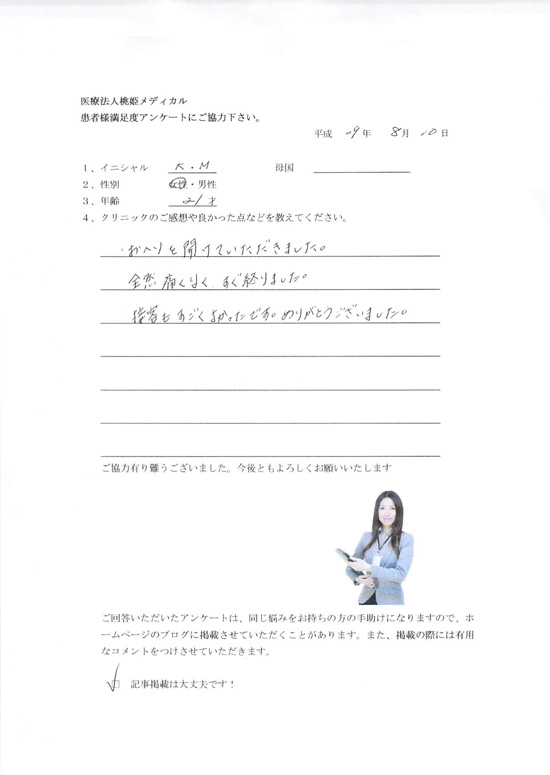 医療法人桃姫メディカル
患者様満足度アンケートにご協力下さい。
平成 29年 8月 10日
1、イニシャル K・M 母国
2、性別 女性・男性
3、年齢 21才
4、クリニックのご感想や良かった点などを教えてください。
・おへソを開けていただきました。
全然痛くなく、すぐ終りました。
接客もすごくよかったです。ありがとうございました。
ご協力有り難うございました。今後ともよろしくお願いいたします
ご回答いただいたアンケートは、同じ悩みをお持ちの方の手助けになりますので、ホ
ームページのブログに掲載させていただくことがあります。また、掲載の際には有用
なコメントをつけさせていただきます。
☑ 記事掲載は大丈夫です！